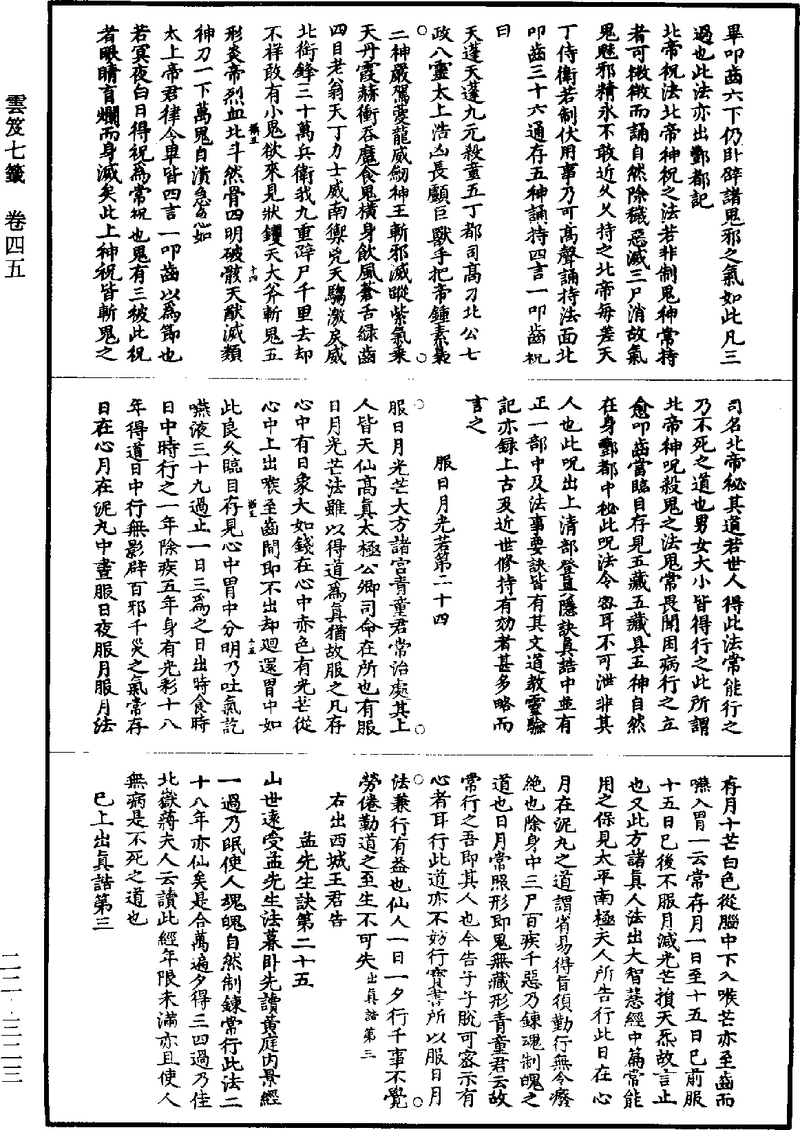 雲笈七籤　卷四五
畢叩齒六下仍卧辟諸鬼邪之氣如此凡三
過也此法亦出酆都記
北帝祝法北帝神祝之法若非制鬼神常持
者可微微而誦自然除穢惡滅三尸消故氣
鬼魅邪精永不敢近久久持之北帝每差天
丁侍衛若制伏用事乃可高聲誦持法面北
叩齒三十六通存五神誦持四言一叩齒祝
曰
天蓬天蓬九元殺童五丁都司高刀北公七
政八靈太上浩凶長顱巨獸手把帝鍾素梟
二神嚴駕夔龍威劒神王斬邪滅蹤紫氣乗
天丹霞赫衝吞魔食鬼橫身飲風蒼舌緑齒
四目老翁天丁力士威南禦兇天騶激戾威
北銜鋒三十萬兵衛我九重辟尸千里去却
不祥敢有小鬼欲來見狀钁天大斧斬鬼五
形炎帝烈血北斗然骨四明破骸天猷滅類
神刀一下萬鬼自潰急急如
太上帝君律令畢皆四言一叩齒以為節也
若冥夜白日得祝為常祝也鬼有三被此祝
者眼睛盲爛而身滅矣此上神祝皆斬鬼之
司名北帝秘其道若世人得此法常能行之
乃不死之道也男女大小皆得行之此所謂
北帝神呪殺鬼之法鬼常畏聞困病行之立
愈叩齒當臨目存見五藏五藏具五神自然
在身酆都中秘此呪法令密耳不可泄非其
人也此呪出上清部登真隱訣真誥中並有
正一部中及法事要訣皆有其文道教靈驗
記亦録上古及近世修持有効者甚多略而
言之
服日月光芒第二十四
服日月光芒大方諸宮青童君常治處其上
人皆天仙高真太極公卿司命在所也有服
日月光芒法雖以得道為真猶故服之凡存
心中有日象大如錢在心中赤色有光芒從
心中上出喉至齒間即不出却迴還胃中如
此良久臨目存見心中胃中分明乃吐氣訖
嚥液三十九過止一日三為之日出時食時
日中時行之一年除疾五年身有光彩十八
年得道日中行無影辟百邪千災之氣常存
日在心月在泥丸中晝服日夜服月服月法
存月十芒白色從腦中下入喉芒亦至齒而
嚥入胃一云常存月一日至十五日已前服
十五日已後不服月減光芒損天炁故言止
也又此方諸真人法出大智慧經中篇常能
用之保見太平南極夫人所告行此日在心
月在泥丸之道謂省易得旨須勤行無令癈
絶也除身中三尸百疾千惡乃鍊魂制魄之
道也日月常照形即鬼無藏形青童君云故
常行之吾即其人也今告子子脫可密示有
心者耳行此道亦不妨行寳書所以服日月
法兼行有益也仙人一日一夕行千事不覺
勞倦勤道之至生不可失出真誥第三
右出西城王君告
孟先生訣第二十五
山世遠受孟先生法暮卧先讀黃庭内景經
一過乃眠使人魂魄自然制鍊常行此法二
十八年亦仙矣是合萬遍夕得三四過乃佳
北嶽蔣夫人云讀此經年限未滿亦且使人
無病是不死之道也
已上出真誥第三
二二·三二三